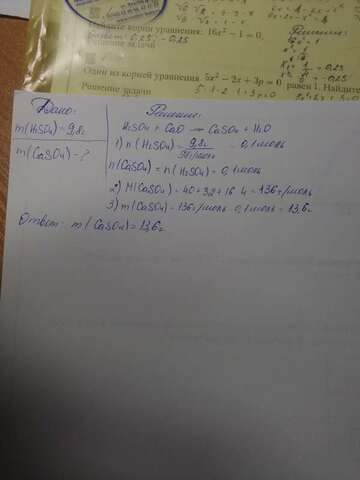 Найдите корни уравнения: 16x² − 1 = 0.
Ответ: 0,25; −0,25
Решение задачи
Один из корней уравнения 5x² − 2x + 3p = 0 равен 1. Найдите
Решение задачи
Дано:
m(H₂SO₄) = 9,8г
m(CaSO₄) - ?
Решение:
H₂SO₄ + CaO → CaSO₄ + H₂O
1) n(H₂SO₄) = 9,8г / 98г/моль = 0,1моль
n(CaSO₄) = n(H₂SO₄) = 0,1моль
2) M(CaSO₄) = 40+32+16·4 = 136г/моль
3) m(CaSO₄) = 136г/моль · 0,1моль = 13,6г
Ответ: m(CaSO₄) = 13,6г